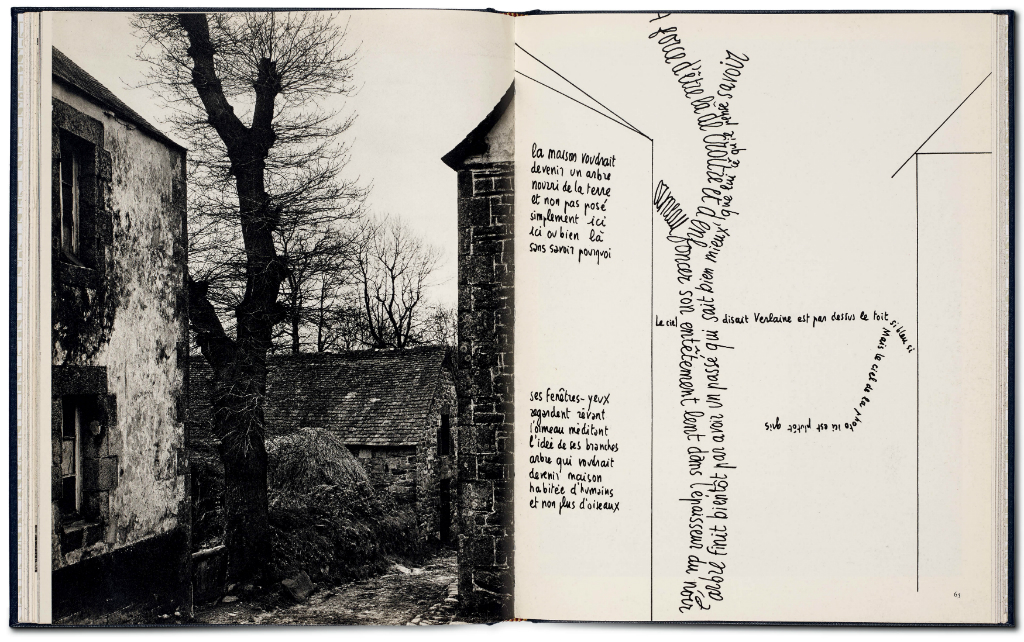 la maison voudrait
devenir un arbre
nourri de la terre
et non pas posé
simplement ici
ici ou bien là
sans savoir pourquoi
ses fenêtres-yeux
regardent rêvant
l'ormeau méditant
l'idée de ses branches
arbre qui voudrait
devenir maison
habitée d'humains
et non plus d'oiseaux
A force d'être là de croître et d'enfoncer son entêtement lent dans l'épaisseur du noir
terreau
l'arbre finit bientôt par avoir un passé qui sait bien mieux que lui ce qu'il pense savoir
Le ciel disait Verlaine est par dessus le toit si bleu si
Mais le ciel de la photo ici est plutôt gris